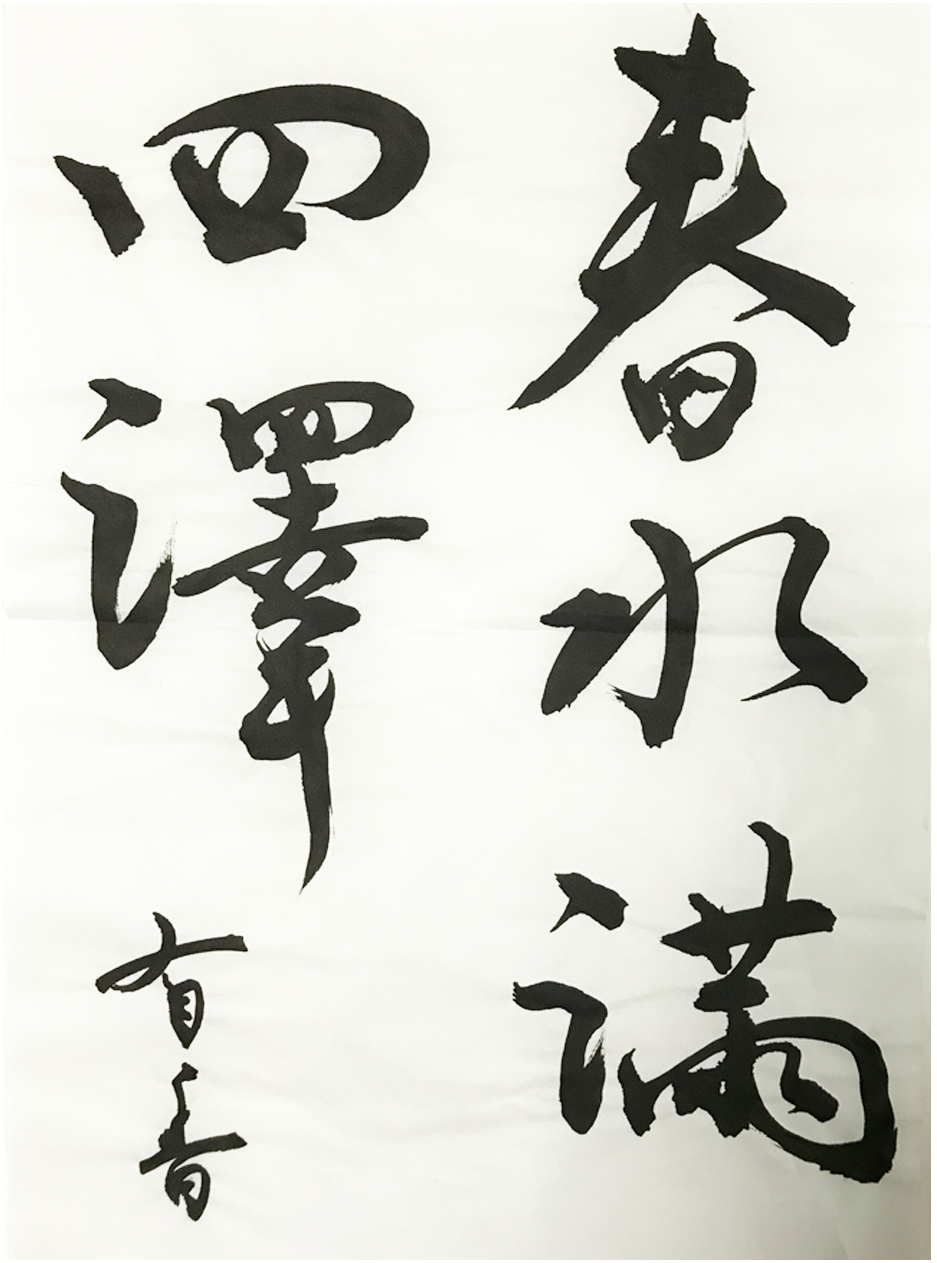 春水滿
四澤
有香